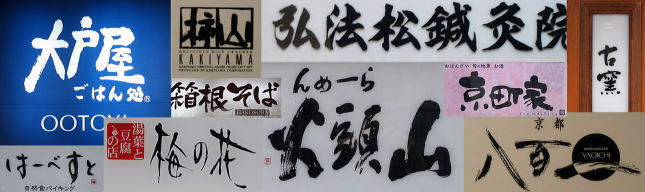 大戸屋
ごはん処
OOTOYA
柿山
KAKIYAMA
弘法松鍼灸院
古窯
箱根そば
HAKONESOBA
らーめん
火頭山
おばんざい 旬の地魚 お酒
京町家
はーべすと
自然食バイキング
湯葉と
豆腐
の店
梅の花
京都
八百一
YAOICHI